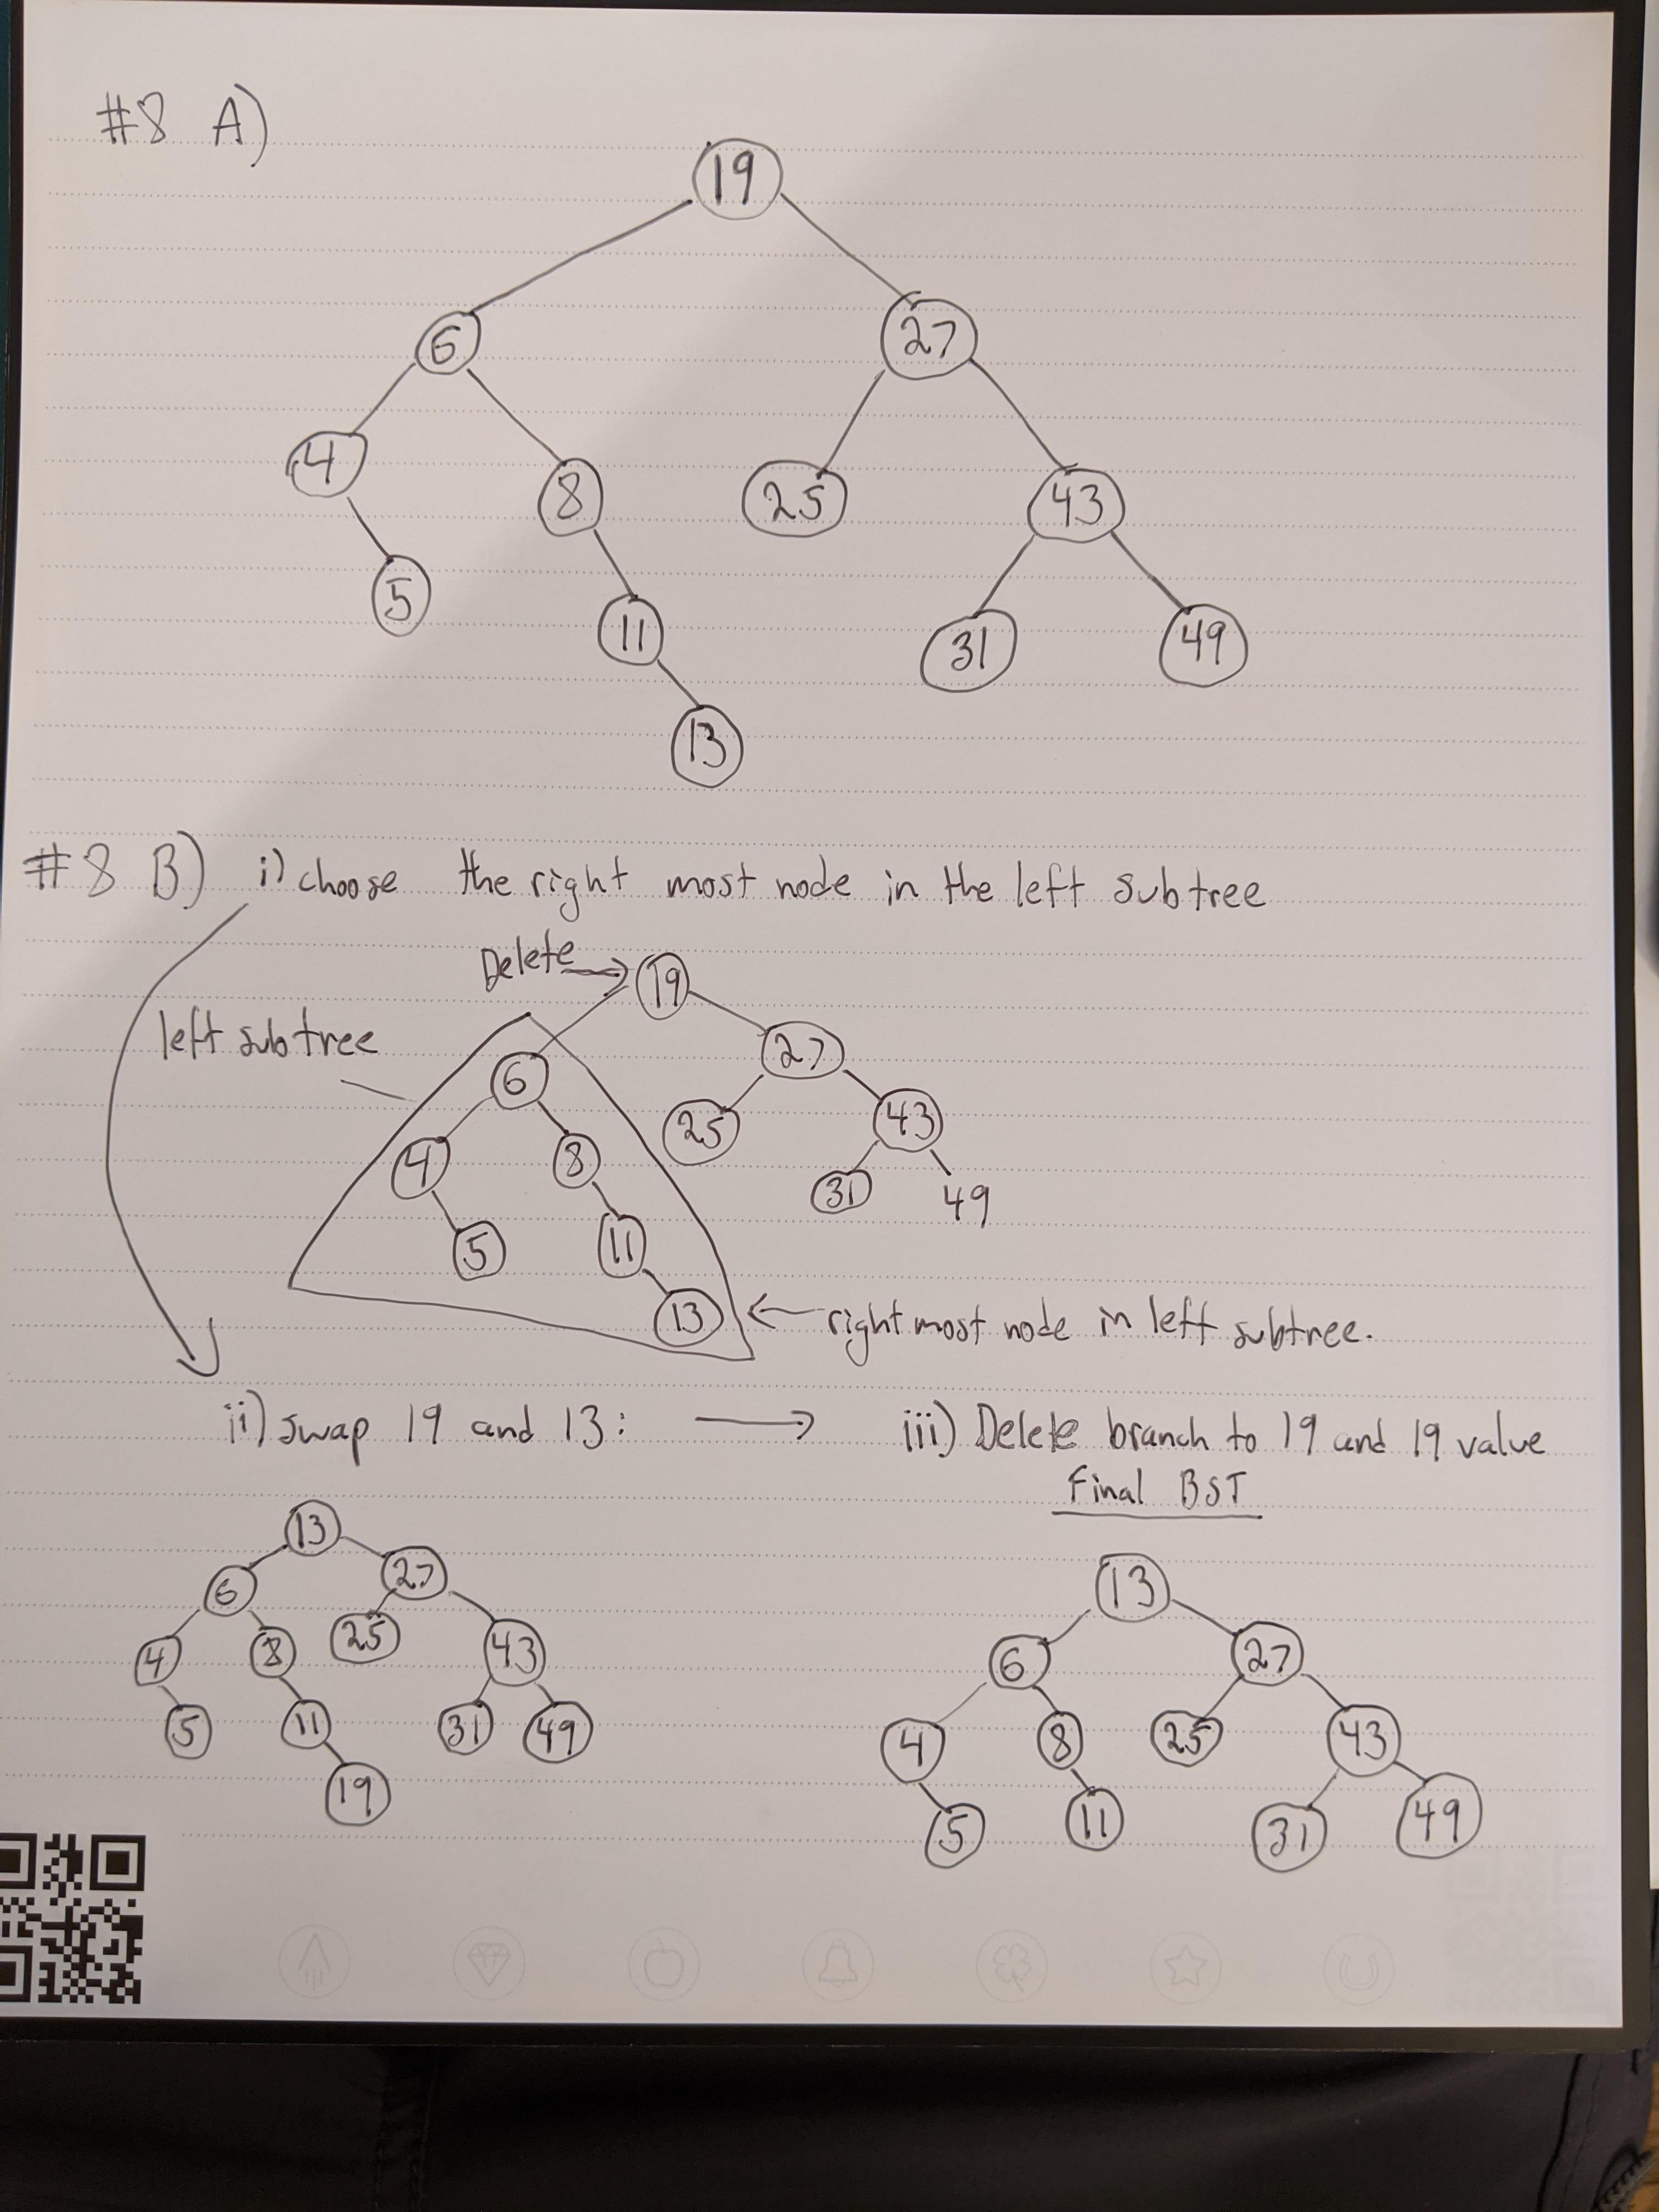 #8 A)
19
6 27
4 8 25 43
5 11 31 49
13
#8 B) i) choose the right most node in the left subtree
Delete → 19
left subtree
6 27
4 8 25 43
5 11 31 49
13 ← right most node in left subtree.
ii) swap 19 and 13: →
iii) Delete branch to 19 and 19 value
Final BST
13
6 27
4 8 25 43
5 11 31 49
19
13
6 27
4 8 25 43
5 11 31 49